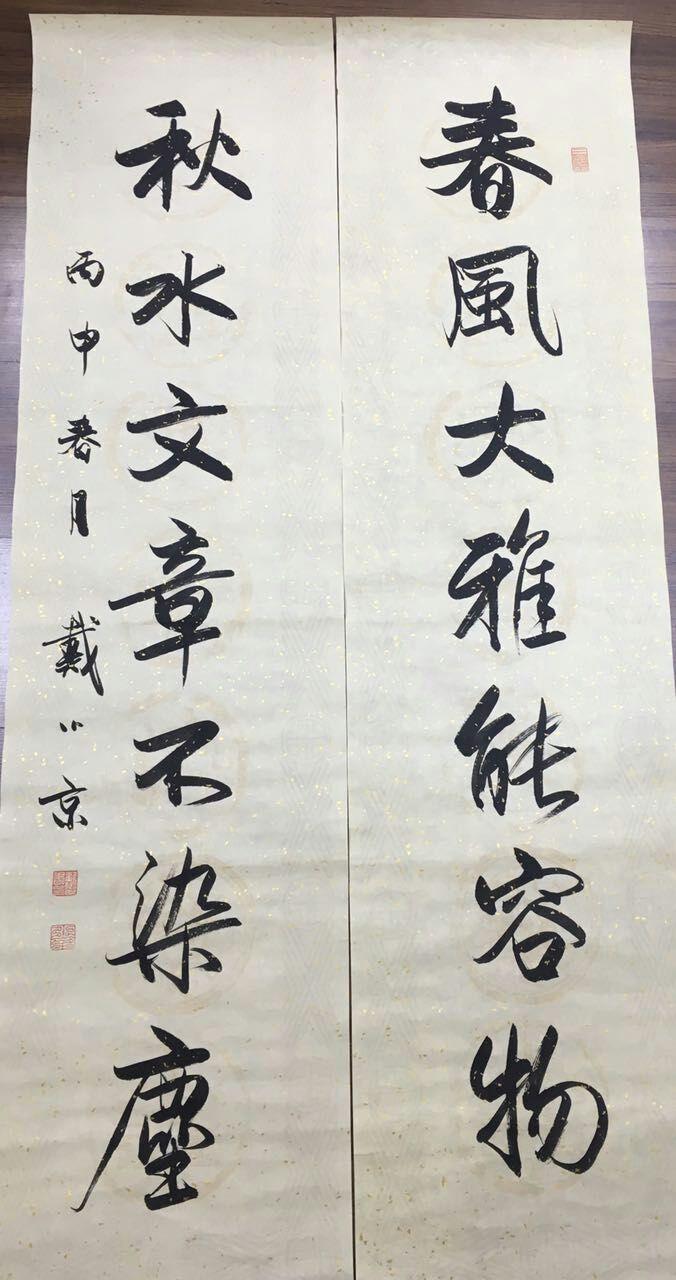 春風大雅能容物
秋水文章不染塵
丙申春月 戴小京